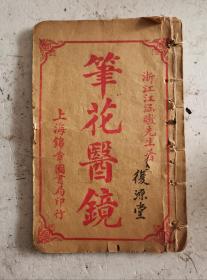 浙江江涵暾先生著
筆花醫鏡
上海錦章圖書局印行
復源堂